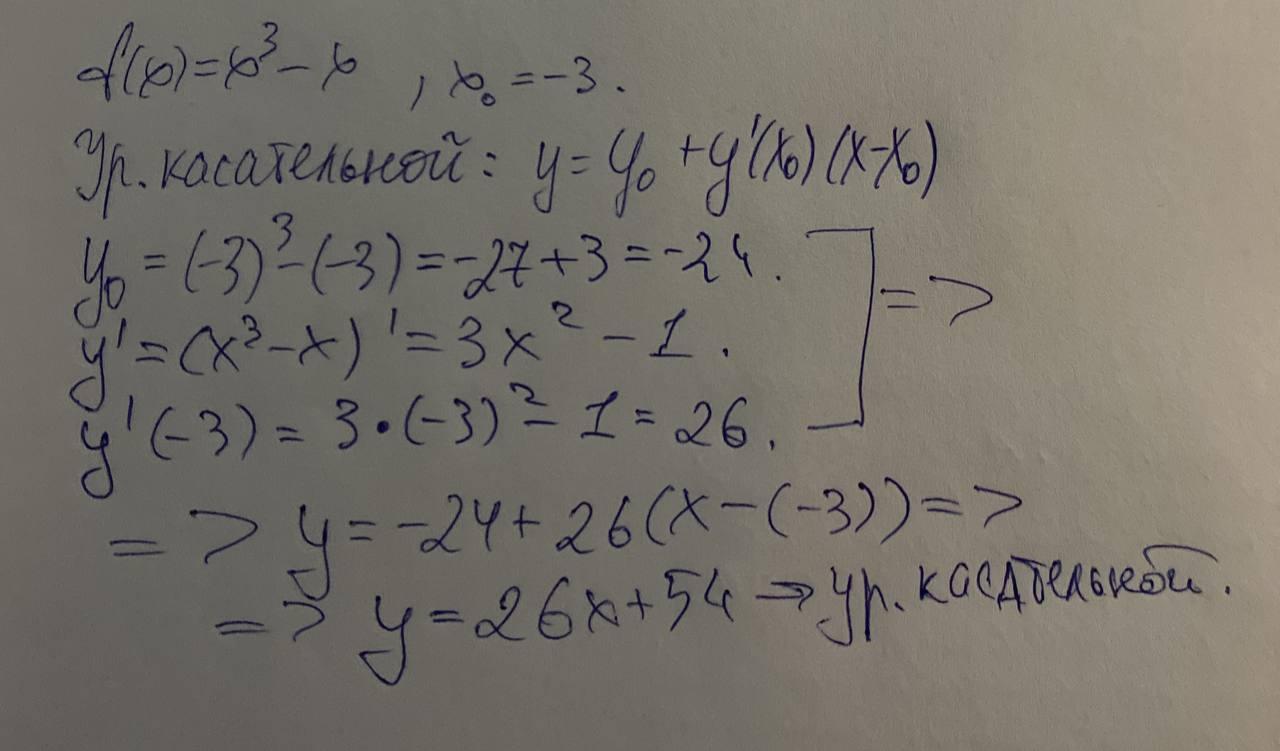 f(x)=x³-x , x₀=-3.
Ур. касательной: y=y₀+y'(x₀)(x-x₀)
y₀=(-3)³-(-3)=-27+3=-24.
y'=(x³-x)'=3x²-1. ] =>
y'(-3)=3·(-3)²-1=26.
=> y=-24+26(x-(-3))=>
=> y=26x+54 → ур. касательной.